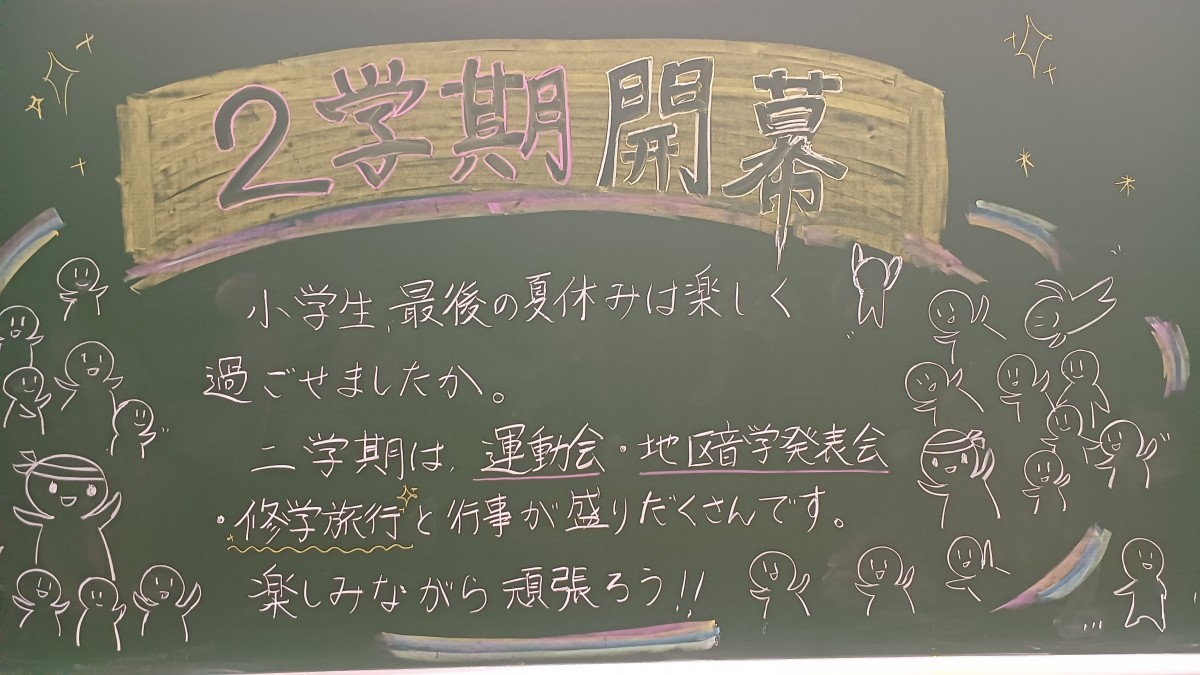 2学期開幕
小学生、最後の夏休みは楽しく
過ごせましたか。
二学期は、運動会・地区音学発表会
・修学旅行と行事が盛りだくさんです。
楽しみながら頑張ろう!!